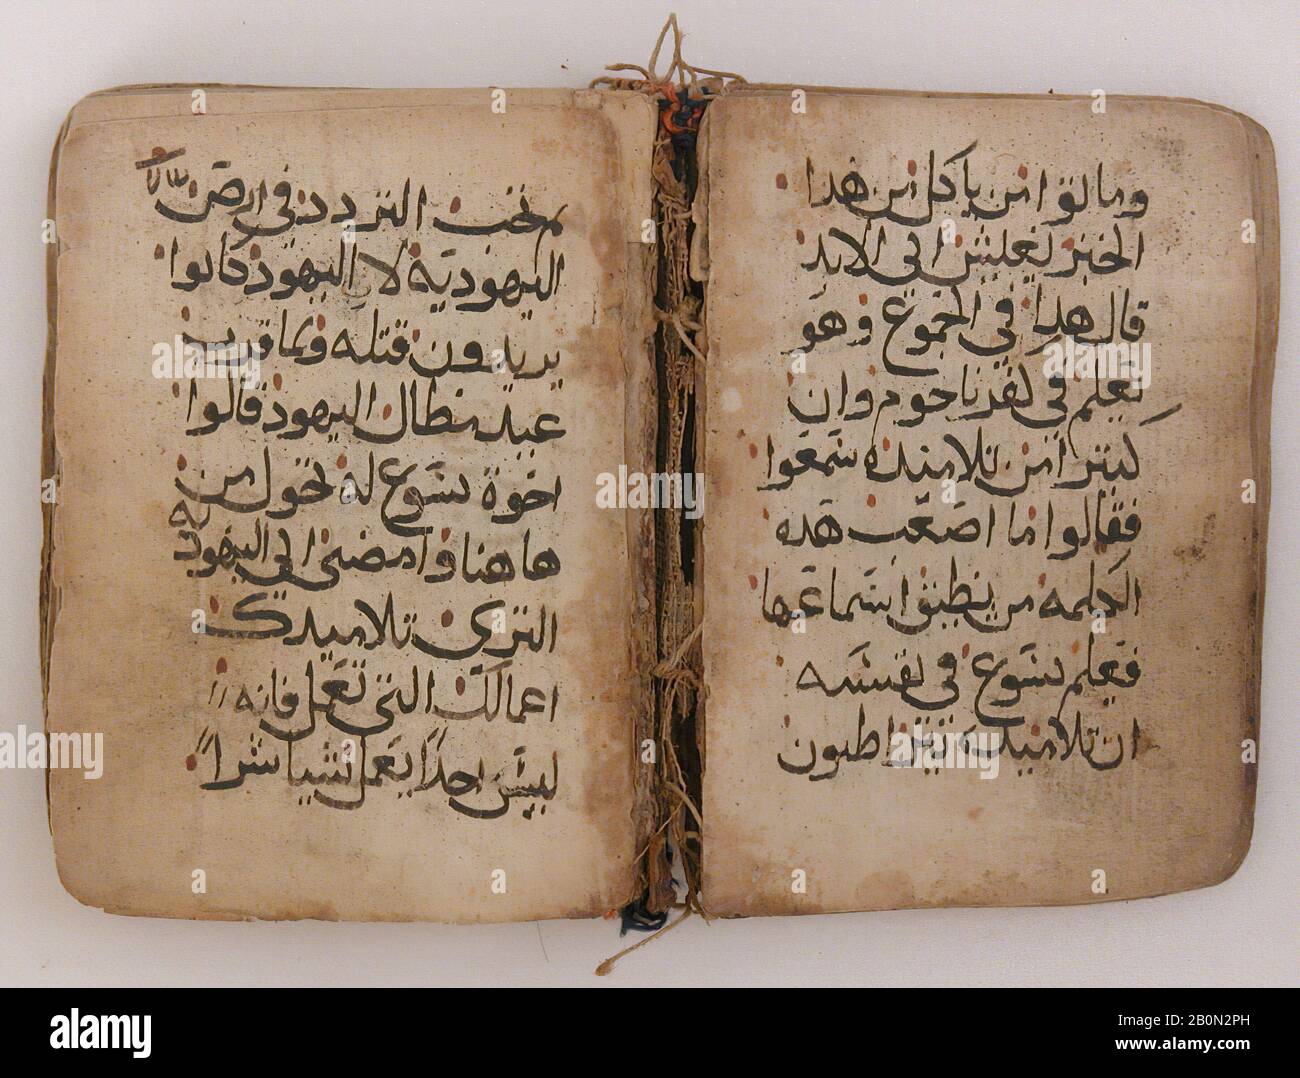 وماتوا من ياكل من هدا
الخبز يعيش الى الابد
قال هدا في الجموع وهو
يعلم في كفرناحوم وان
كثيرا من تلاميذه سمعوا
فقالوا ما اصعب هذه
الكلمه من يطيق استماعها
فعلم يسوع في نفسه
ان تلاميذه يتراطنون
يحب التردد في ارض
اليهودية لان اليهود كانوا
يريدون قتله وكما قرب
عيد مظال اليهود قالوا
اخوة يسوع له تحول من
هاهنا وامضى الى اليهوديه
لترى تلاميذك
اعمالك التي تعمل فانه
ليس احدا يعمل شيا سرا
alamy
Image ID: 2B0N2PH
www.alamy.com